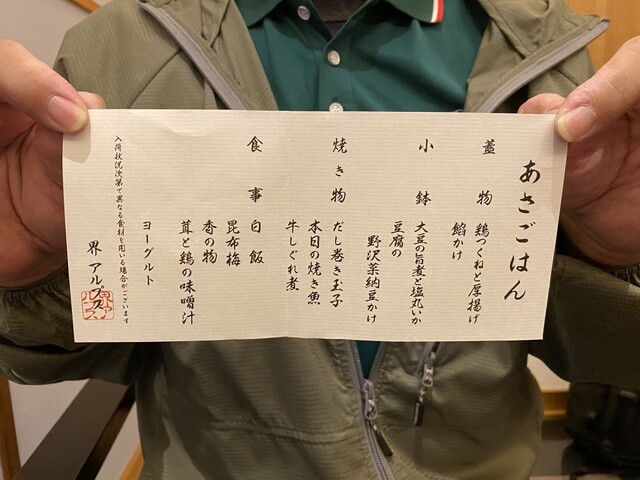 あさごはん
蓋物 鶏つくねと厚揚げ
餡かけ
小鉢 大豆の旨煮と塩丸いか
豆腐の
野沢菜納豆かけ
焼き物 だし巻き玉子
本日の焼き魚
牛しぐれ煮
食事 白飯
昆布梅
香の物
茸と鶏の味噌汁
ヨーグルト
入荷状況次第で異なる食材を用いる場合がございます
界 アルプス
界アルプス